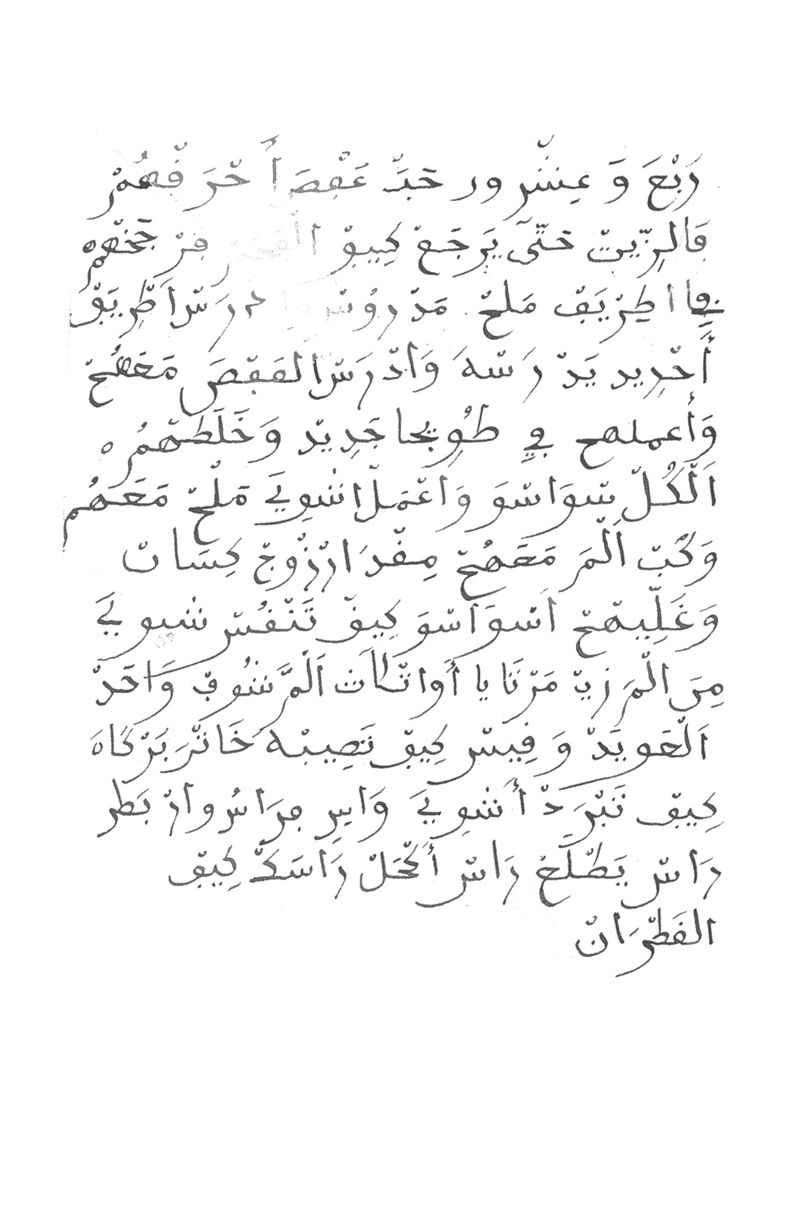 رَبْعَ وَ عِشْرِ ور حَبَّ عَفْصَ اُحْرَفْهُمْ
فَالزِّيتْ حَتَّى يَرجَعْ كِيفْ الْفَحَمْ
اطِرْيَفْ مَلْحْ مَدْرُوسْ ادْرَسْ اطْرِيَفْ
أَحْدِيد يَدْ رَسْهَ وَادْرَسْ الْعَفْصَ مَعَهُمْ
وَأعملهم فِي طُوِيجا جَدِيدْ وَخَلَطْهُمْ
اَلْكُلْ سْوَاسْوَ وَاعْمَلْ اشْوِيَ مَلْحْ مَعَهُمْ
وَكُبْ اَلْمَ مَعَهُمْ مِقْدَارْ زْوجْ كِسَاتْ
وَغَلِّيهمْ اسْوَاسْوَ كِيفْ تَنْقُسْ شْوِيَ
مِنَ الْمَ زِيدْ مَرْتَايا أَواتْلَاتْ اَلْمَ شُوفْ وَاحَدْ
اَلْعَوِيَدْ وَ فِيسْ كِيفْ تَصِيبْهَ خَاتْرَ بَرْكَاهَ
كِيفْ تَبْرَدْ أَشْوِيَ وَاسِ مِرَاسُوارْ بَطر
رَاسْ يَطْلَعْ رَاسْ أَكْحَلْ رَاسَكْ كِيفْ
القَطْرَانْ